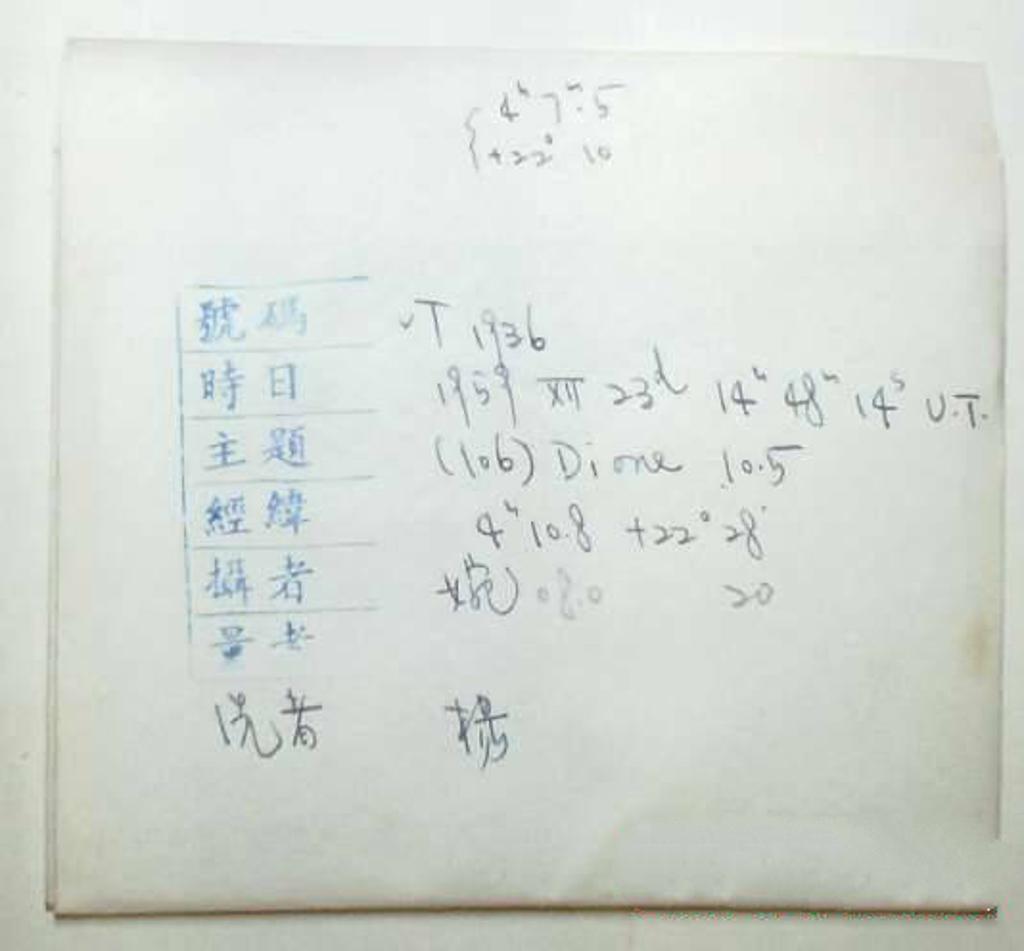 4ʰ 7ᵐ.5
+22° 10
號碼 √T 1936
時日 1959 XII 23ᵈ 14ʰ 48ᵐ 14ˢ U.T.
主題 (106) Dione 10.5
經緯 4ʰ 10.8 +22° 28'
攝者 婉 08.0 20
洗者 楊